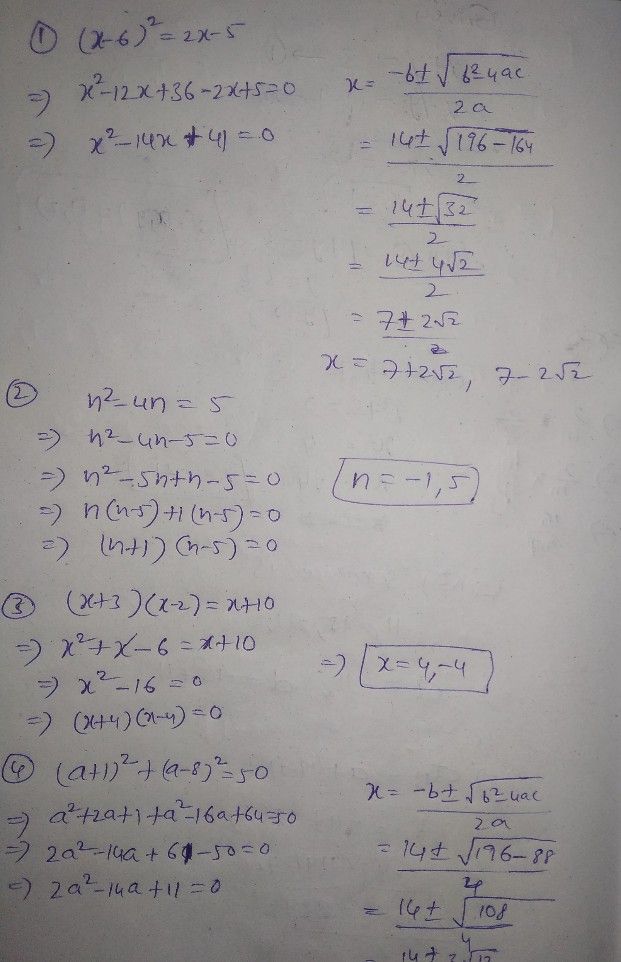 ① (x-6)² = 2x-5
⇒ x²-12x+36-2x+5=0
⇒ x²-14x+41=0
x = (-b±√(b²-4ac))/2a
= (14±√(196-164))/2
= (14±√32)/2
= (14±4√2)/2
= 7±2√2
x = 7+2√2, 7-2√2
② n²-4n = 5
⇒ n²-4n-5=0
⇒ n²-5n+n-5=0
⇒ n(n-5)+1(n-5)=0
⇒ (n+1)(n-5)=0
n=-1,5
③ (x+3)(x-2)=x+10
⇒ x²+x-6=x+10
⇒ x²-16=0
⇒ (x+4)(x-4)=0
⇒ x=4,-4
④ (a+1)²+(a-8)²=50
⇒ a²+2a+1+a²-16a+64=50
⇒ 2a²-14a+61-50=0
⇒ 2a²-14a+11=0
x = (-b±√(b²-4ac))/2a
= (14±√(196-88))/4
= (14±√108)/4